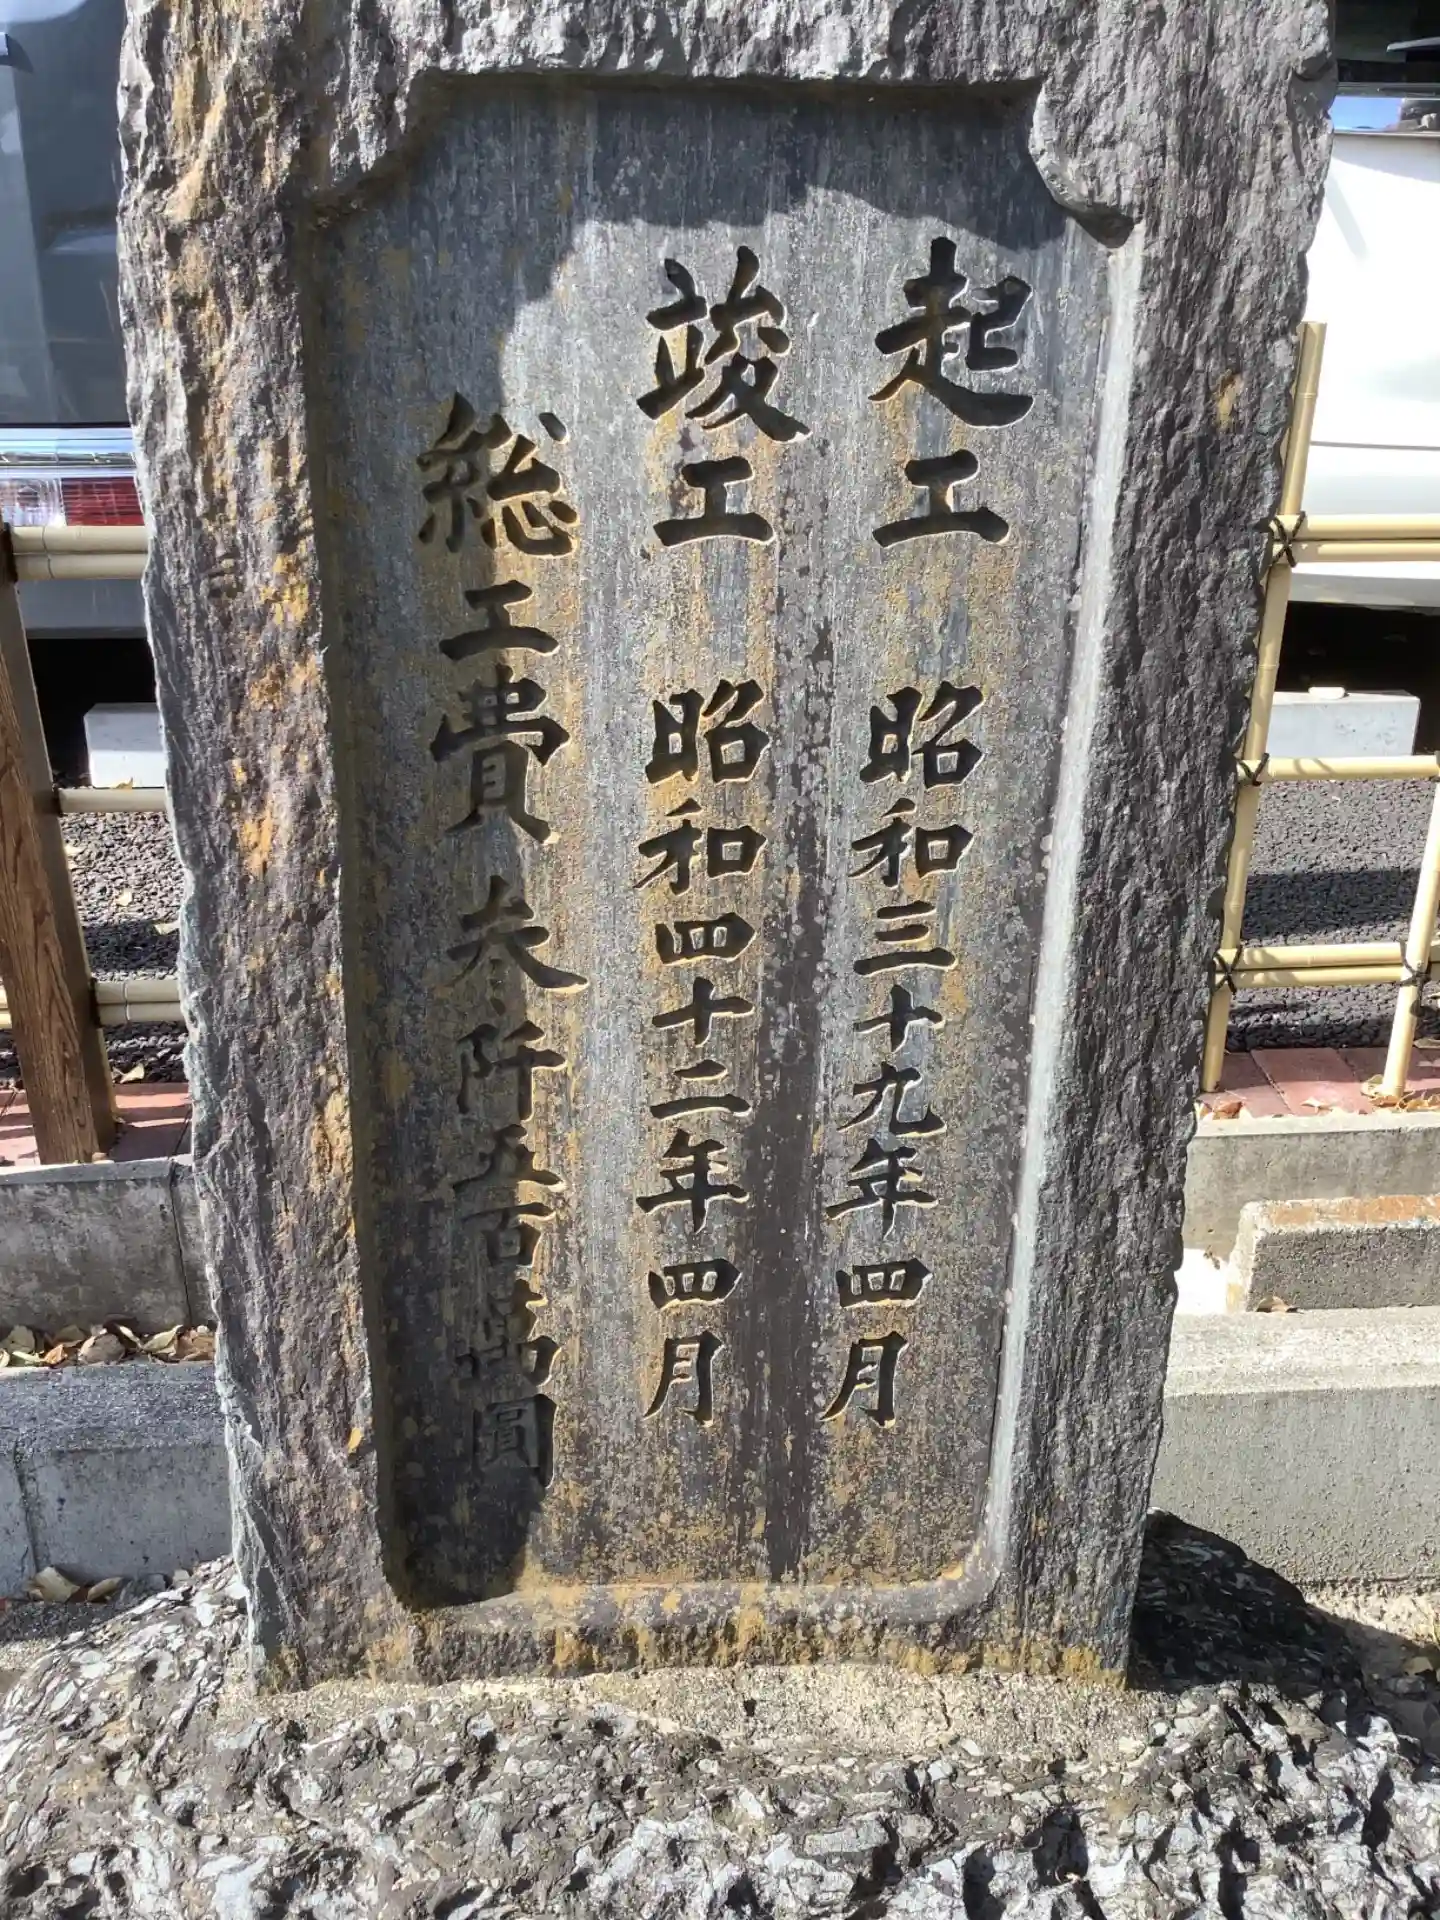 起工 昭和三十九年四月
竣工 昭和四十二年四月
総工費 参阡五百萬圓